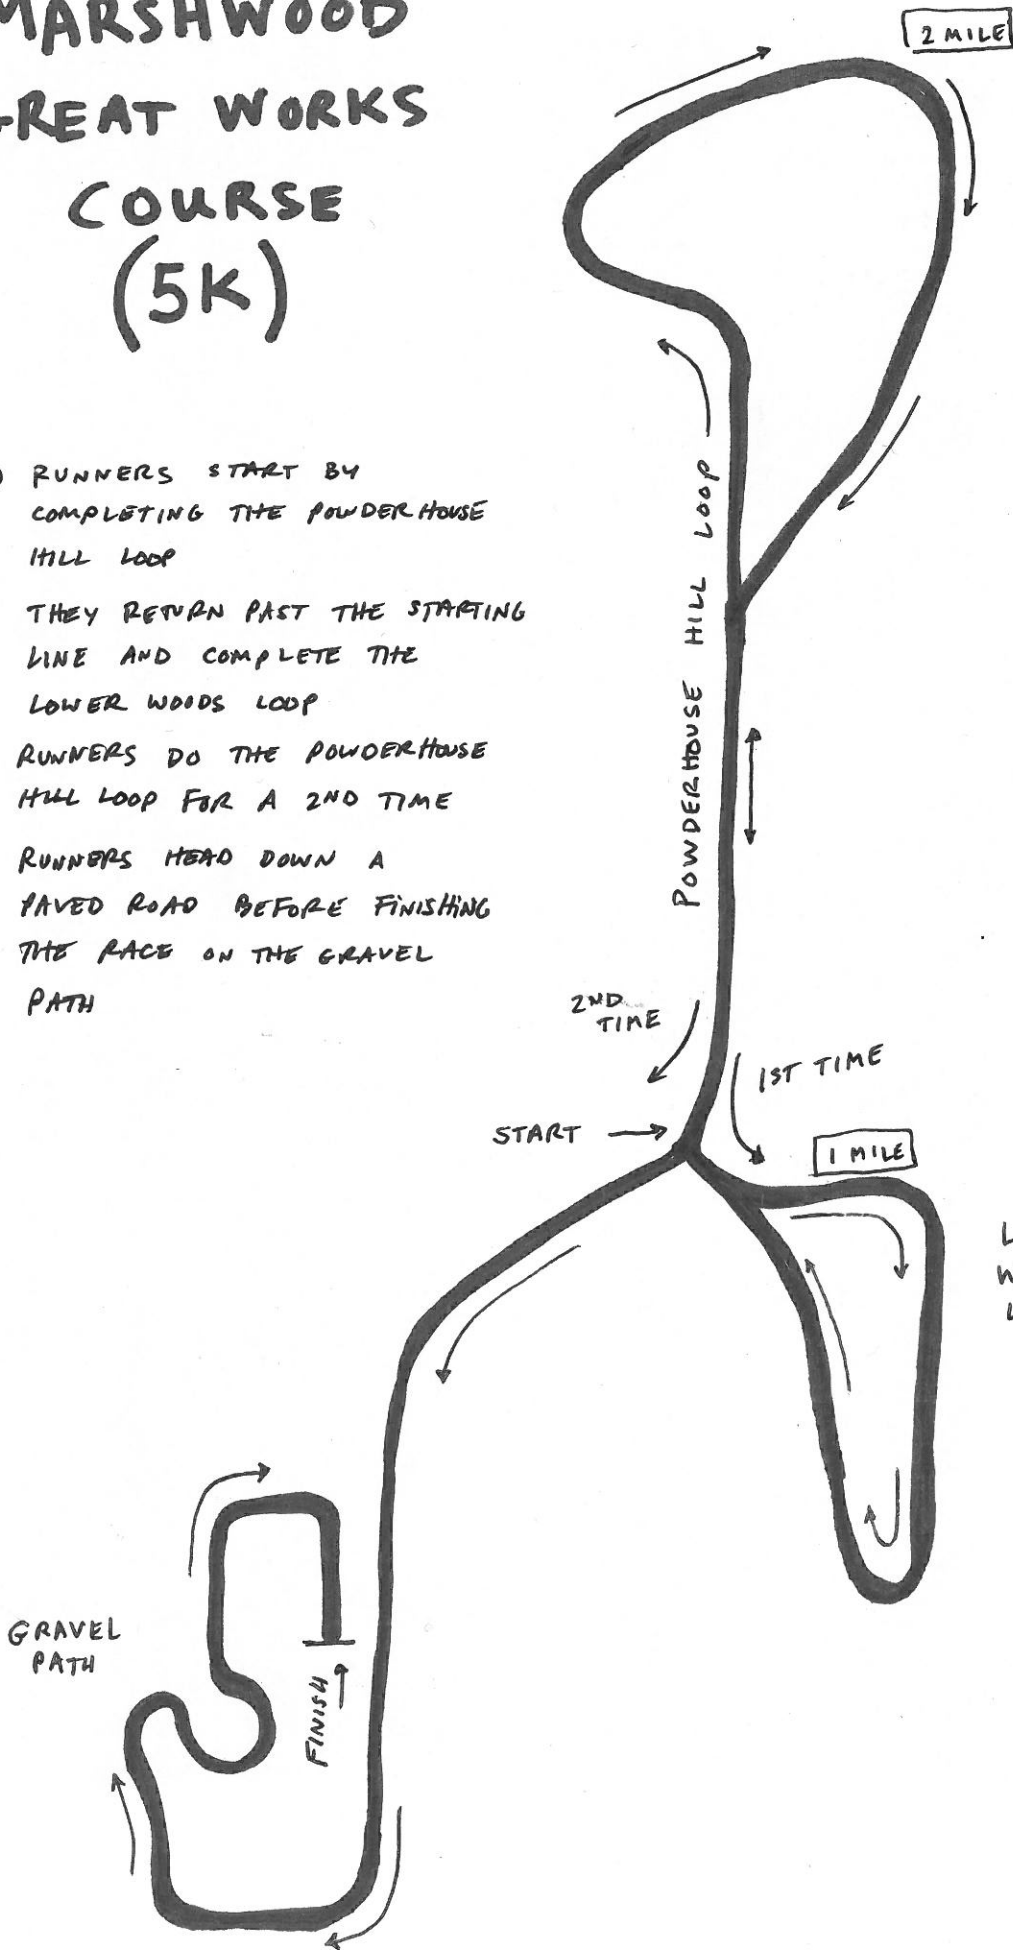 MARSHWOOD
GREAT WORKS
COURSE
(5K)
2 MILE
RUNNERS START BY
COMPLETING THE POWDERHOUSE
HILL LOOP
THEY RETURN PAST THE STARTING
LINE AND COMPLETE THE
LOWER WOODS LOOP
RUNNERS DO THE POWDERHOUSE
HILL LOOP FOR A 2ND TIME
RUNNERS HEAD DOWN A
PAVED ROAD BEFORE FINISHING
THE RACE ON THE GRAVEL
PATH
POWDERHOUSE HILL LOOP
2ND
TIME
1ST TIME
START
1 MILE
GRAVEL
PATH
FINISH